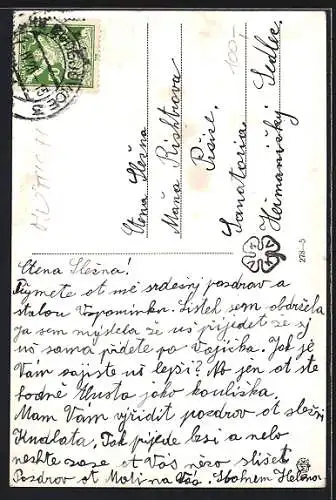 100,-
Ctena Slešna
Maňa Rishtrova
Pisií.
Sanatoria
Heřmaniský Sedlec.
278-5
Ctena Slešna!
Přymete ot mě srdesný pozdrav a
stalou Vzpominku. Listek sem obdržela
Ja sem myslela že už přijedet že sy
už sama přdete po Vajička. Jak je
Vám sajiste už lepší? No jen ot ste
hodně tlusta jako koulička.
Mam Vám vyřidit pozdrov ot slešni
Kndlata, Tak přijede lesi a nebo
neshte zase ot Vás něco slišet
Pozdrov ot Matina Váš. Sbohnem Helena